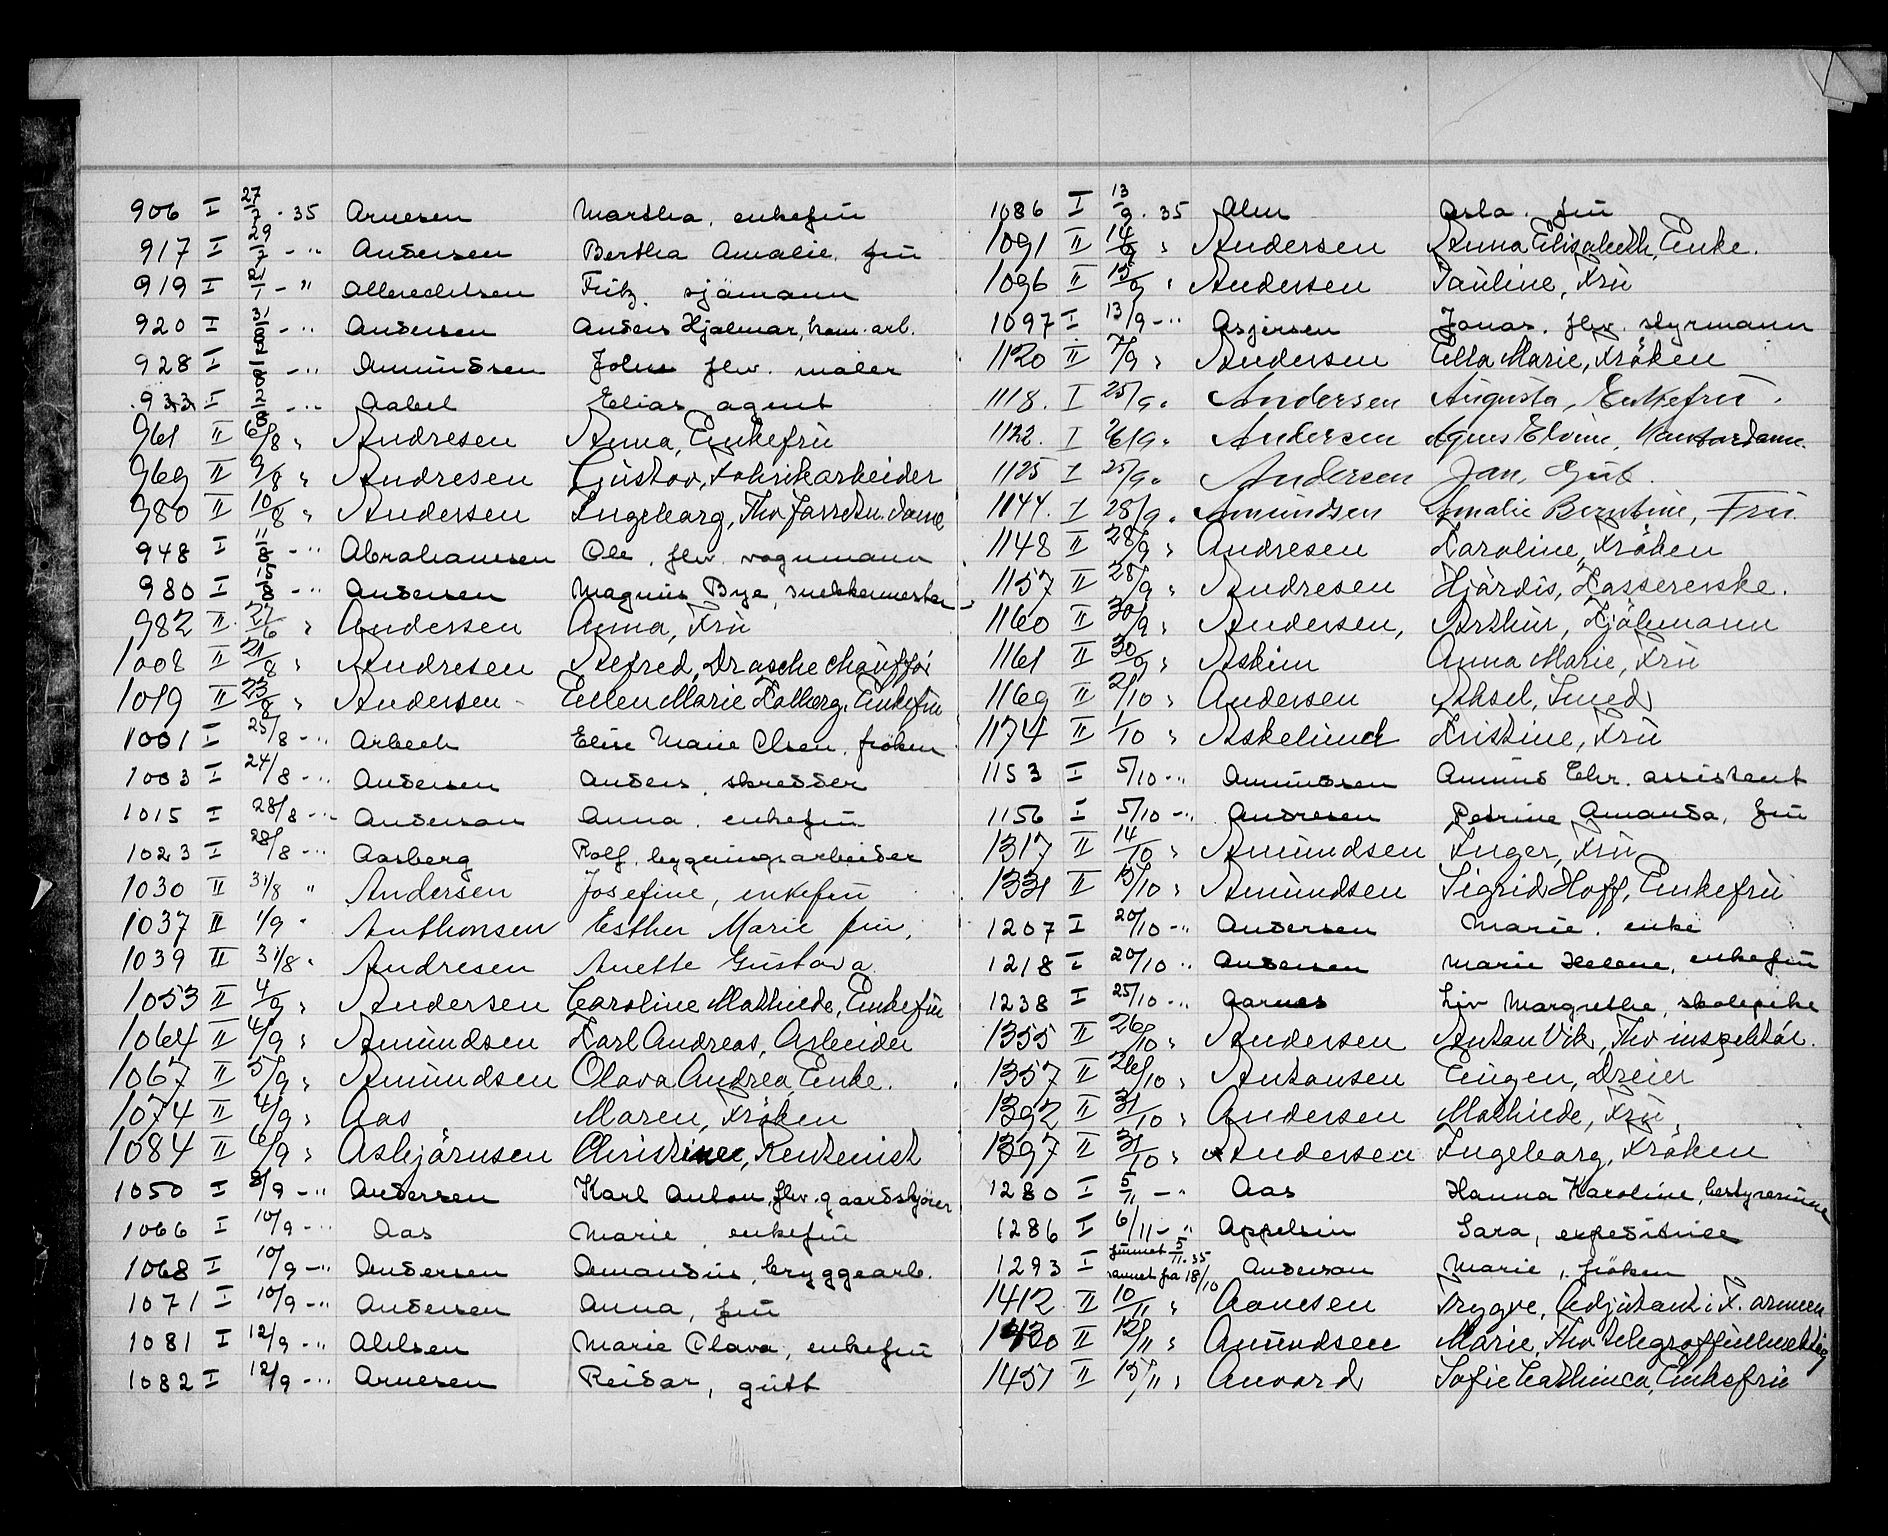 906 I 27/7 - 35 Arnesen Martha, enkefru
917 I 29/7 - " Andersen Bertha Amalie, fru
919 I - " Albrechtsen Fritz, sjömann
920 I 31/ - " Andersen Anders Hjalmar, kom. arb.
928 I - " Amundsen John fhv. maler
933 I - " Aabel Elias agent
961 II 6/8 " Andresen Anna, Enkefru
969 II 9/8 " Andresen Gustav, Fabrikarbeider
980 II 10/8 " Andersen Ingeborg, Fhv Forretn. dame
948 I 11/8 - " Abrahamsen Ole, fhv. vognmann
980 I 15/8 - " Andersen Magnus Bye, snekkermester
982 II Andersen Anna, Fru
1008 II 21/8 " Andresen Alfred, Drosche chaufför
1019 II 23/8 " Andersen Ellen Marie Holberg, Enkefru
1001 I 25/8 - " Arbech Elise Marie Olsen, fröken
1003 I 24/8 - " Andersen Anders, skredder
1015 I 28/8 - " Anderson Anna, enkefru
1023 I 28/8 - " Aasberg Rolf, bygningsarbeider
1030 II 31/8 " Andersen Josefine, enkefru
1037 II 1/9 " Anthonsen Esther Marie fru,
1039 II 31/8 " Andresen Anette Gustava
1053 II 4/9 " Andersen Caroline Mathilde, Enkefru
1064 II 4/9 " Amundsen Karl Andreas, Arbeider
1067 II 5/9 " Amundsen Olava Andrea, Enke.
1074 II 4/9 " Aas Maren, Fröken
1084 II 6/9 " Asbjörnsen Christine, Rentenist
1050 I 8/9 - " Andersen Karl Anton, fhv. gaardskjörer
1066 I 10/9 - " Aas Marie, enkefru
1068 I 10/9 - " Andersen Amandus, bryggearb.
1071 I 10/9 - " Andersen Anna, fru
1081 I 12/9 - " Ahlsen Marie Olava, enkefru
1082 I 12/9 - " Arnesen Reidar, gutt
1086 I 13/9 - 35 Alm Asla, fru
1091 II 14/9 " Andersen Anna Elisabeth, Enke.
1096 II 15/9 " Andersen Pauline, Fru
1097 I 13/9 - " Asjersen Jonas, fhv. styrmann
1120 II 7/9 " Andersen Ella Marie, Fröken
1118. I 25/9 " Andersen Augusta, Enkefru.
1122. I 26/9 " Andersen Agnes Elvine, Kontordame.
1125 I 25/9 " Andersen Jan, Gut.
1144. I 28/9 " Amundsen Amalie Berntine, Fru.
1148 II 28/9 " Andresen Karoline, Fröken
1157 II 28/9 " Andresen Hjördis, Kassererske.
1160 II 30/9 " Andersen, Arthur, Sjömann
1161 II 30/9 " Askim Anna Marie, Fru
1169 II 2/10 " Andersen Aksel, Smed
1174 II 1/10 " Askelund Kristine, Fru
1153 I 5/10 - " Amundsen Amund Chr. assistent
1156 I 5/10 - " Andresen Petrine Amanda, fru
1317 II 14/10 " Amundsen Inger, Fru
1331 II 15/10 " Amundsen Sigrid Hoff, Enkefru
1207 I 20/10 - " Andersen Marie, enke
1218 I 20/10 " Andersen Marie Helene, enkefru
1238 I 25/10 - " Aarnes Liv Margrethe, skolepike
1355 II 26/10 " Andersen Anton Vik, Fhv inspektör.
1357 II 26/10 " Antonsen Eugen, Dreier
1392 II 31/10 " Andersen Mathilde, Fru
1397 II 31/10 " Andersen Ingeborg, Fröken
1280 I 5/11 - " Aas Hanna Karoline, bestyrerinne
1286 I 6/11 - " Appelsin Sara, expeditrice
1293 I funnet 5/11. 35 savnet fra 18/10 Anderson Marie, fröken
1412 II 10/11 " Aanesen Trygve, Adjutant i F. armeen
1430 II 12/11 " Amundsen Marie, Fhv telegraffullmektig
1451 II 15/11 " Anvard Sofie Cathinca, Enkefru